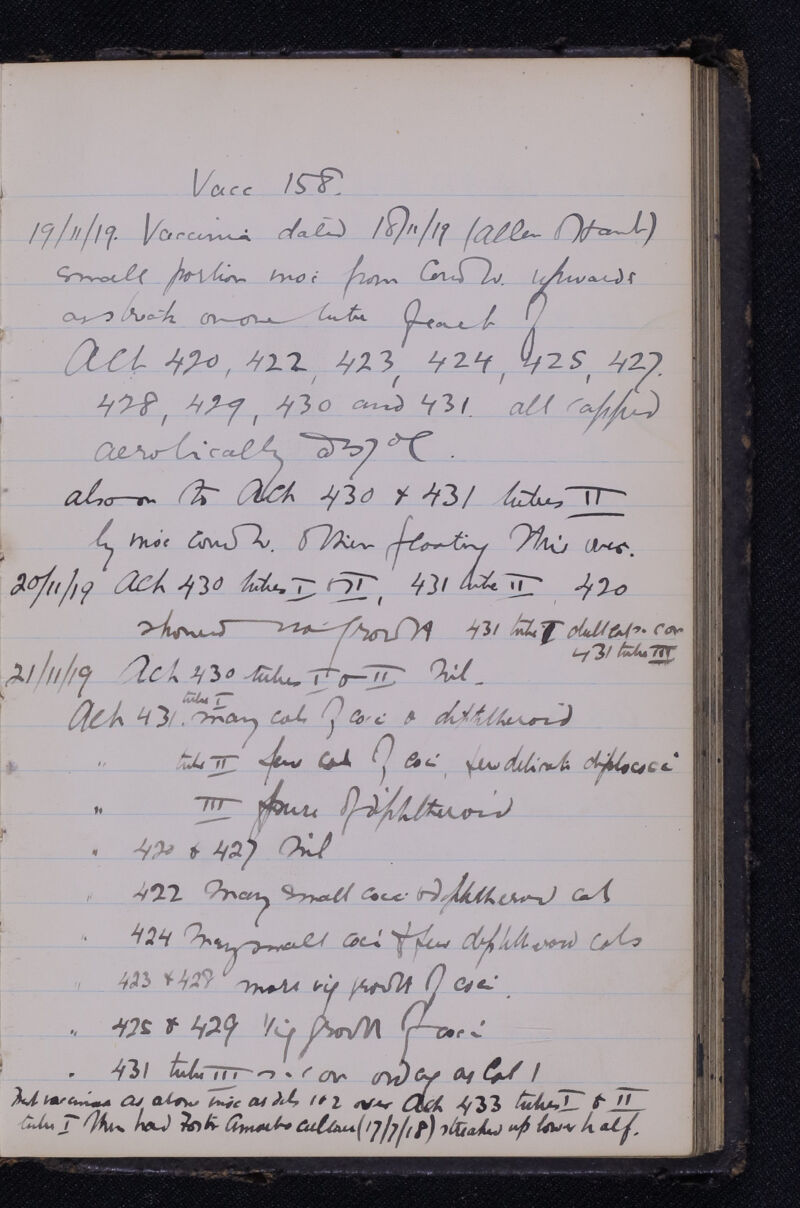 Vacc 158.
19/11/19. Vaccinia dated 18/11/19 (Allen & Hanb)
small portion inoc from Cond W. upwards
as streak on one tube of each of
Ach 420, 422, 423, 424, 425, 427.
428, 429, 430 and 431. all capped
aerobically at 37°C.
also on to Ach 430 & 431 tubes II
by inoc cond W. & then floating this over.
20/11/19 Ach 430 tubes I & II, 431 tube II, 420
showed no growth 431 tube I
431 tube III
21/11/19 Ach 430 tubes I & II Nil.
Ach 431. tube I many cols of cocci & diphtheroid
" tube II few cols of cocci, few delicate diplococci
" III pure of diphtheroid
" 420 & 427 Nil
" 422 Many small cocci & diphtheroid cols
" 424 Many small cocci & few diphtheroid cols
" 423 & 428 more vig growth of cocci.
" 425 & 429 Vig growth of cocci
" 431 tube III on as Col 1
vaccinia as above inoc as dils 1 & 2 over Ach 433 tubes I & II
tube I then had Foster Amoeba culture (17/7/18) streaked up lower half.